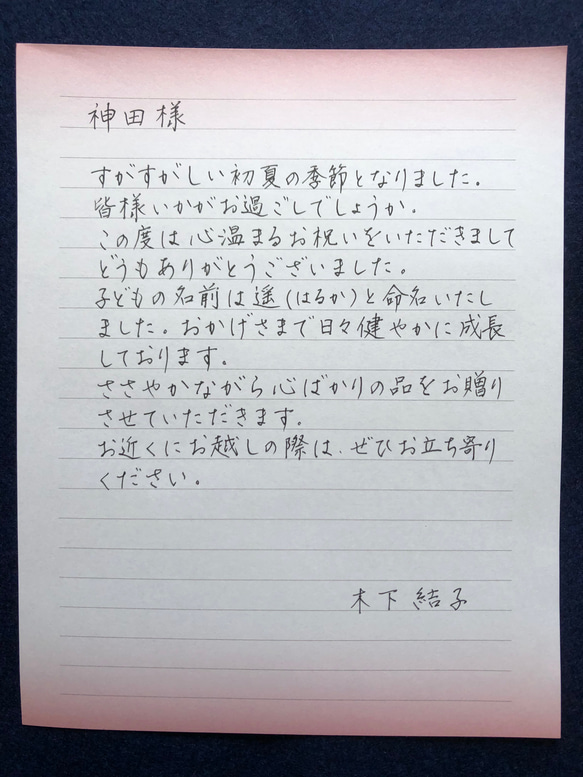 神田様
すがすがしい初夏の季節となりました。
皆様いかがお過ごしでしょうか。
この度は心温まるお祝いをいただきまして
どうもありがとうございました。
子どもの名前は遥(はるか)と命名いたし
ました。おかげさまで日々健やかに成長
しております。
ささやかながら心ばかりの品をお贈り
させていただきます。
お近くにお越しの際は、ぜひお立ち寄り
ください。
木下結子